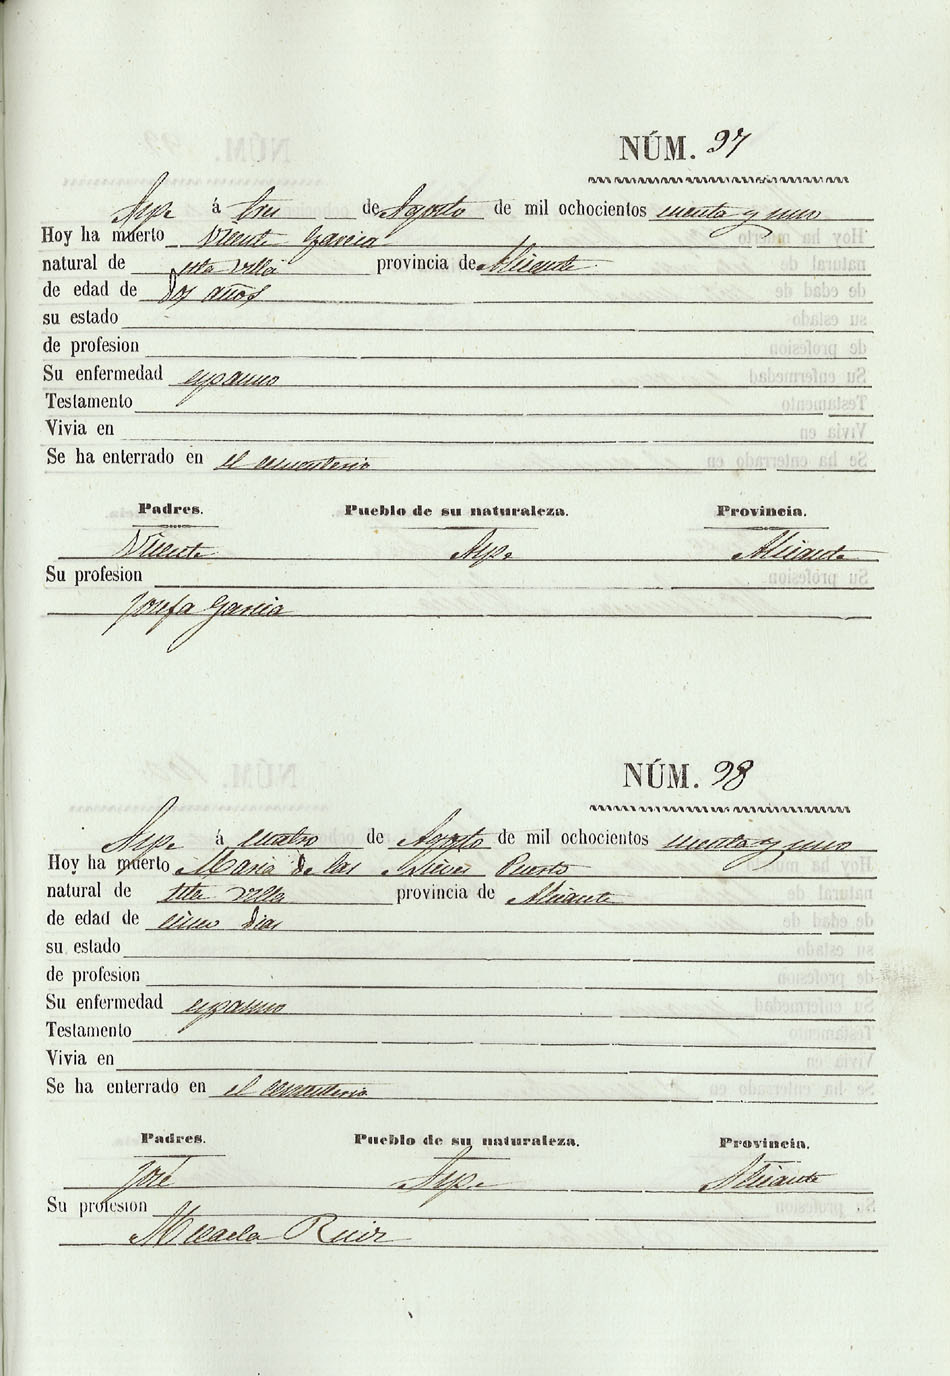 NÚM. 97
Aspe á tres de Agosto de mil ochocientos cuenta y uno
Hoy ha muerto Vicente Garcia
natural de esta villa provincia de Alicante
de edad de dos años
su estado
de profesion
Su enfermedad espasmo
Testamento
Vivia en
Se ha enterrado en el cementerio
Padres. Pueblo de su naturaleza. Provincia.
Vicente Aspe Alicante
Su profesion
Josefa Garcia
NÚM. 98
Aspe á cuatro de Agosto de mil ochocientos cuenta y uno
Hoy ha muerto Maria de las Nieves Puerto
natural de esta villa provincia de Alicante
de edad de cinco dias
su estado
de profesion
Su enfermedad espasmo
Testamento
Vivia en
Se ha enterrado en el cementerio
Padres. Pueblo de su naturaleza. Provincia.
José Aspe Alicante
Su profesion
Micaela Ruiz